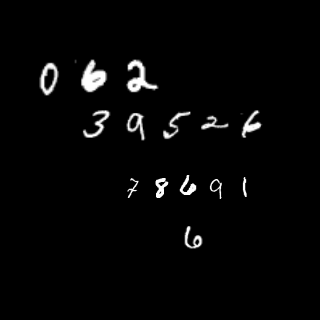 0 6 2
3 9 5 2 6
7 8 6 9 1
6